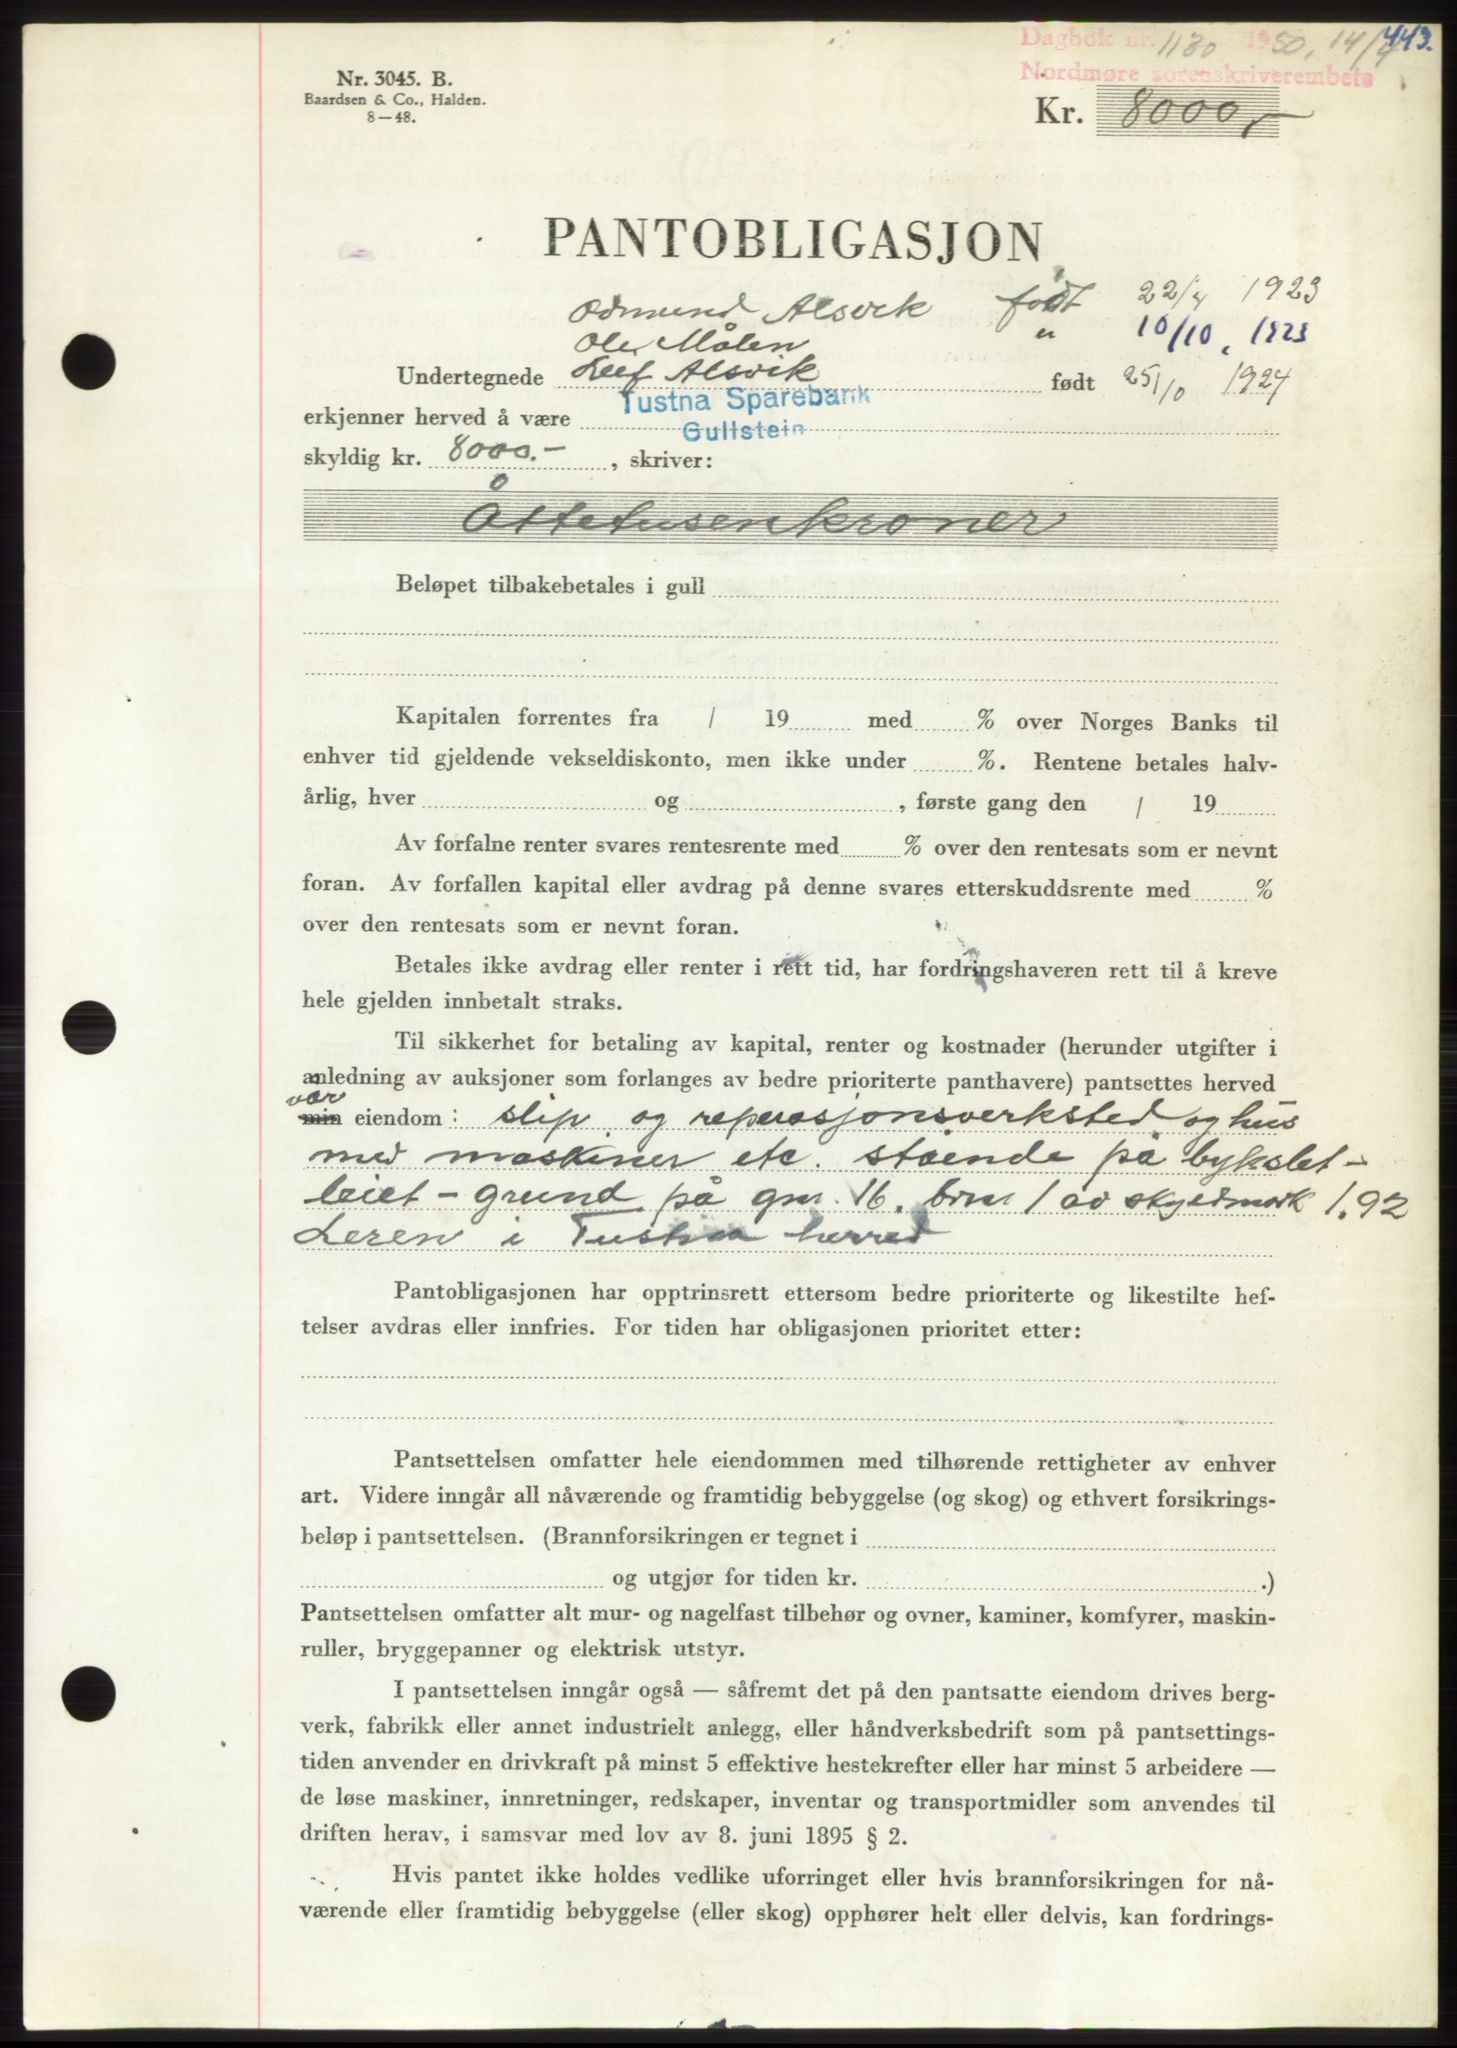 443.
Dagbok nr. 1130 1950, 14/4
Nordmøre sorenskriverembete
Nr. 3045. B.
Baardsen & Co., Halden.
8—48.
Kr. 8000,-
PANTOBLIGASJON
Odmund Alsvik født 22/4 1923
Ole Målen " 10/10, 1923
Undertegnede Leif Alsvik født 25/10 1924
erkjenner herved å være Tustna Sparebank
Gullstein
skyldig kr. 8000.- , skriver:
Åttetusenkroner
Beløpet tilbakebetales i gull
Kapitalen forrentes fra / 19 med % over Norges Banks til
enhver tid gjeldende vekseldiskonto, men ikke under %. Rentene betales halv-
årlig, hver og , første gang den / 19
Av forfalne renter svares rentesrente med % over den rentesats som er nevnt
foran. Av forfallen kapital eller avdrag på denne svares etterskuddsrente med %
over den rentesats som er nevnt foran.
Betales ikke avdrag eller renter i rett tid, har fordringshaveren rett til å kreve
hele gjelden innbetalt straks.
Til sikkerhet for betaling av kapital, renter og kostnader (herunder utgifter i
anledning av auksjoner som forlanges av bedre prioriterte panthavere) pantsettes herved
vår
min eiendom: slip og reperasjonsverksted og hus
med maskiner etc. stående på bykslet-
leiet-grund på gnr. 16. brnr 1 av skyldmark 1.92
Leren i Tustna herred
Pantobligasjonen har opptrinsrett ettersom bedre prioriterte og likestilte hef-
telser avdras eller innfries. For tiden har obligasjonen prioritet etter:
Pantsettelsen omfatter hele eiendommen med tilhørende rettigheter av enhver
art. Videre inngår all nåværende og framtidig bebyggelse (og skog) og ethvert forsikrings-
beløp i pantsettelsen. (Brannforsikringen er tegnet i
og utgjør for tiden kr. .)
Pantsettelsen omfatter alt mur- og nagelfast tilbehør og ovner, kaminer, komfyrer, maskin-
ruller, bryggepanner og elektrisk utstyr.
I pantsettelsen inngår også — såfremt det på den pantsatte eiendom drives berg-
verk, fabrikk eller annet industrielt anlegg, eller håndverksbedrift som på pantsettings-
tiden anvender en drivkraft på minst 5 effektive hestekrefter eller har minst 5 arbeidere —
de løse maskiner, innretninger, redskaper, inventar og transportmidler som anvendes til
driften herav, i samsvar med lov av 8. juni 1895 § 2.
Hvis pantet ikke holdes vedlike uforringet eller hvis brannforsikringen for nå-
værende eller framtidig bebyggelse (eller skog) opphører helt eller delvis, kan fordrings-